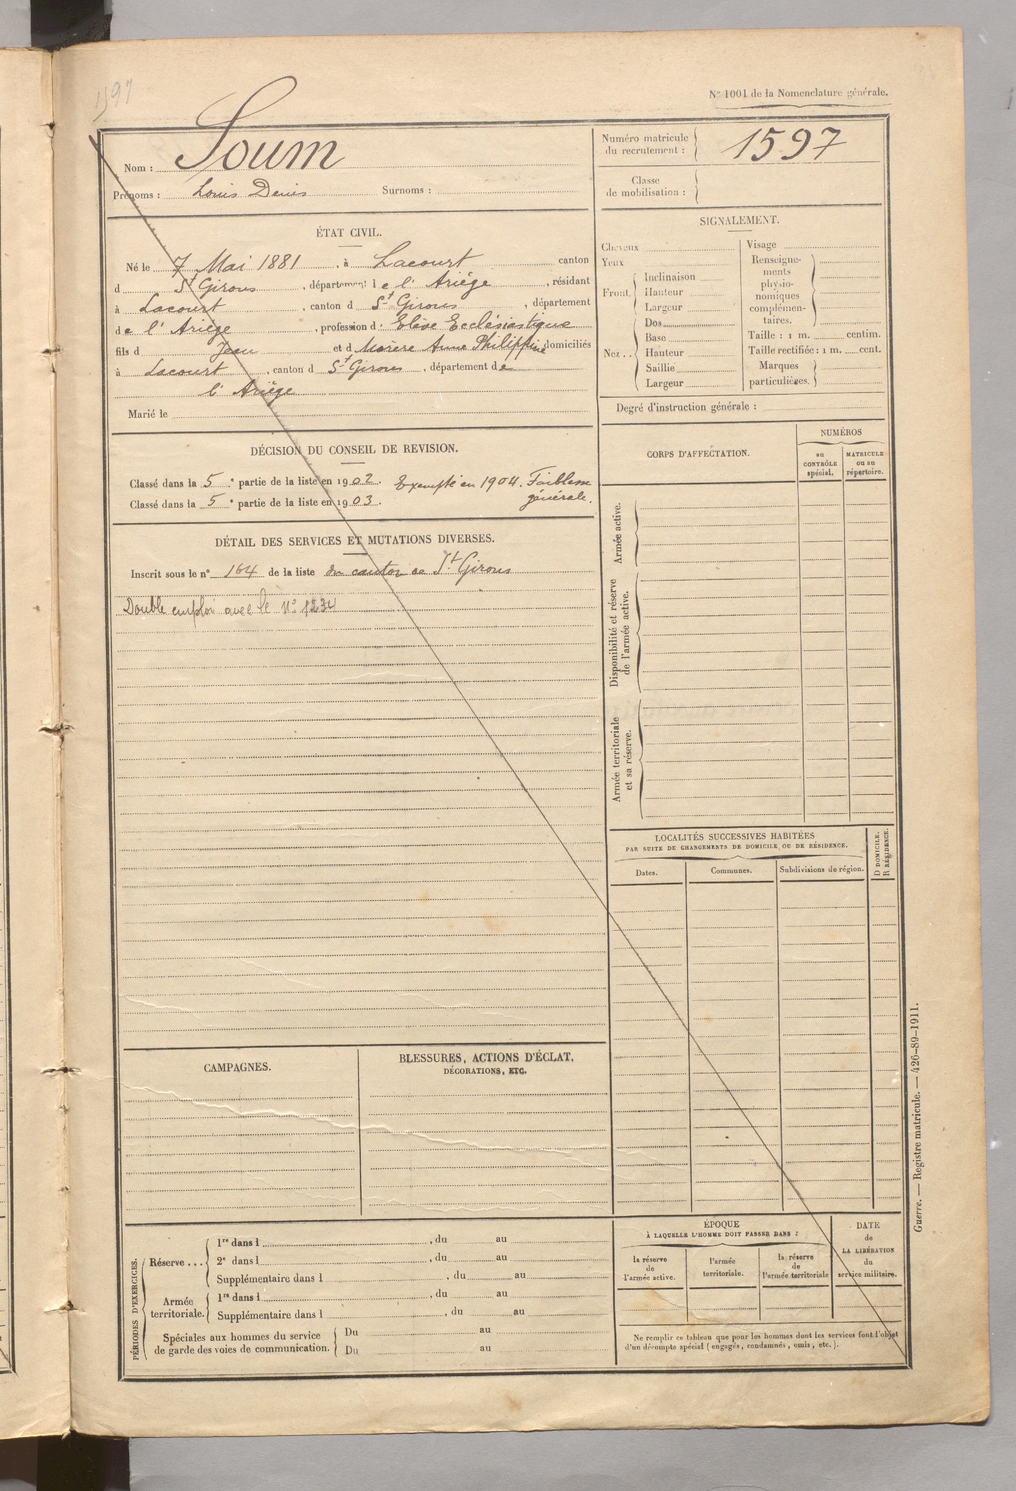 1597
N° 1001 de la Nomenclature générale.
Nom : Soum
Prénoms : Louis Denis Surnoms :
Numéro matricule du recrutement : 1597
Classe de mobilisation :
ÉTAT CIVIL.
Né le 7 Mai 1881, à Lacourt canton
d St Girons, département de l'Ariège, résidant
à Lacourt, canton d St Girons, département
de l'Ariège, profession d' Elève Ecclésiastique
fils d Jean et d Morère Anne Philippine domiciliés
à Lacourt, canton d St Girons, département de
l'Ariège
Marié le
SIGNALEMENT.
Cheveux
Yeux
Front Inclinaison
Hauteur
Largeur
Nez Dos
Base
Hauteur
Saillie
Largeur
Visage
Renseigne-
ments
physio-
nomiques
complémen-
taires.
Taille : 1 m. centim.
Taille rectifiée : 1 m. cent.
Marques
particulières.
Degré d'instruction générale :
DÉCISION DU CONSEIL DE REVISION.
Classé dans la 5e partie de la liste en 1902. Exempté en 1904. Faiblesse
Classé dans la 5e partie de la liste en 1903. générale.
DÉTAIL DES SERVICES ET MUTATIONS DIVERSES.
Inscrit sous le n° 164 de la liste du canton de St Girons
Double emploi avec le N°
CORPS D'AFFECTATION.
NUMÉROS
au
CONTRÔLE
spécial.
MATRICULE
ou au
répertoire.
Armée active.
Disponibilité et réserve
de l'armée active.
Armée territoriale
et sa réserve.
LOCALITÉS SUCCESSIVES HABITÉES
PAR SUITE DE CHANGEMENTS DE DOMICILE OU DE RÉSIDENCE.
Dates.
Communes.
Subdivisions de région.
D DOMICILE.
R RÉSIDENCE.
CAMPAGNES.
BLESSURES, ACTIONS D'ÉCLAT.
DÉCORATIONS, ETC.
PÉRIODES D'EXERCICES.
Réserve... 1re dans l , du au
2e dans l , du au
Supplémentaire dans l , du au
Armée
territoriale. 1re dans l , du au
Supplémentaire dans l , du au
Spéciales aux hommes du service
de garde des voies de communication. Du au
Du au
ÉPOQUE
À LAQUELLE L'HOMME DOIT PASSER DANS :
la réserve
de
l'armée active.
l'armée
territoriale.
la réserve
de
l'armée territoriale
DATE
de
LA LIBÉRATION
du
service militaire.
Ne remplir ce tableau que pour les hommes dont les services font l'objet
d'un décompte spécial (engagés, condamnés, omis, etc.).
Guerre. — Registre matricule. — 426-89-1911.